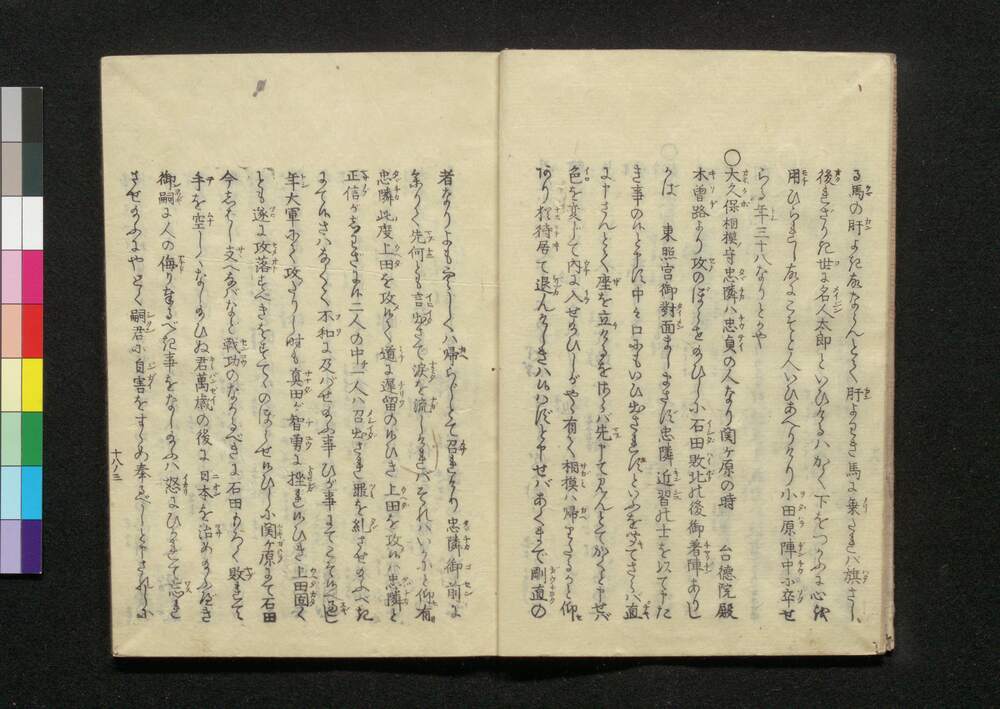 る馬の肝よきなくんとて肝よわき馬に乗たれハ旗さし
後きざりだ世に名人太郎といひけるハかく下をつかふに心を
用ひられし故にこそと人いひあへりけり小田原陣中に卒せ
らる年三十八なりとかや
○大久保相摸守忠隣ハ忠貞の人なり関ヶ原の時 台徳院殿
木曾路より攻のぼらせ給ひしに石田敗北の後御着陣ありし
かば 東照宮御對面ましまさず忠隣近習の士を以て申た
き事の候と申に中々口にもいひ出されずといふを聞てさらバ直
に申さんとて座を立けるをはらバ先申て見んとてかくと申せバ
色を変じて内に入せ給ひしがやゝ有て相摸ハ帰りたるかと仰
ありけり猶待居て退んけしき候はずと申せバあくまで剛直の
者なりよもむなしくハ帰らじとて召れけり忠隣御前に
参りて先何とも言出さで涙を流しけれバそれハいかにと仰有
忠隣此度上田を攻んとて道に遅留のゆひき上田を攻候ハ忠隣と
正信がしわざに候二人の中一人ハ召出され罪を糺させ給ふべき
にて候さハなくて不和に及バせ給ふ事ひが事にてこそ候へ過し
年大軍にて攻たりし時も真田が智勇に挫れ候ひき上田固く
とも遂に攻落すべきをすてゝのぼらせ候ひしに関ヶ原にて石田
今しばし支へなバなど戦功のなかるべきに石田もろく敗れて
手を空しくなし給ひぬ君萬歳の後に日本を治め給ふべき
御嗣に人の侮りなるべき事をなし給ふハ怒にひかれて忘れ
させ給ふにやとく嗣君に自害をすゝめ奉るべしと申されしに
十八ノ三